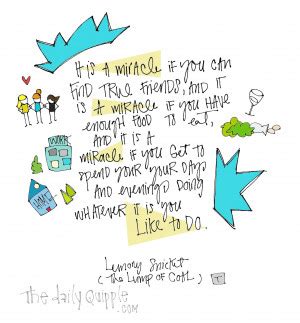 It is a miracle if you can
find true friends, and it
is a miracle if you have
enough food to eat,
and it is a
miracle if you get to
spend your your days
and evenings doing
whatever it is you
like to do.
Lemony Snicket
(The Lump of Coal)
the daily quipple
.com